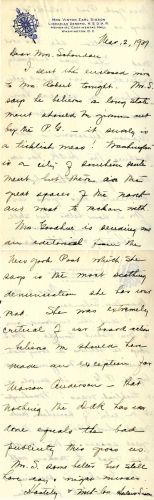 MRS. VICTOR EARL SISSON
LIBRARIAN GENERAL, N.S.D.A.R.
MEMORIAL CONTINENTAL HALL
WASHINGTON, D.C.
Mar. 2, 1939
Dear Mrs.
I sent the enclosed one
to Mrs. Robert tonight. Mr. S.
says he believes a long state-
ment should be given out
by the P. G. It surely is
a ticklish mess! Washington
is a city of Southern senti-
ment but there are the
great spaces of the north
and west to reckon with.
Mrs. is sending me
an editorial from the
New York Post which she
says is the most scathing
denunciation she has ever
read. She was extremely
critical of our board action
– believes we should have
made an exception for
Marian Anderson – that
nothing the DAR has ever
done equals the bad
publicity this gives us.
Mr. S. some better but still
have day & night nurses